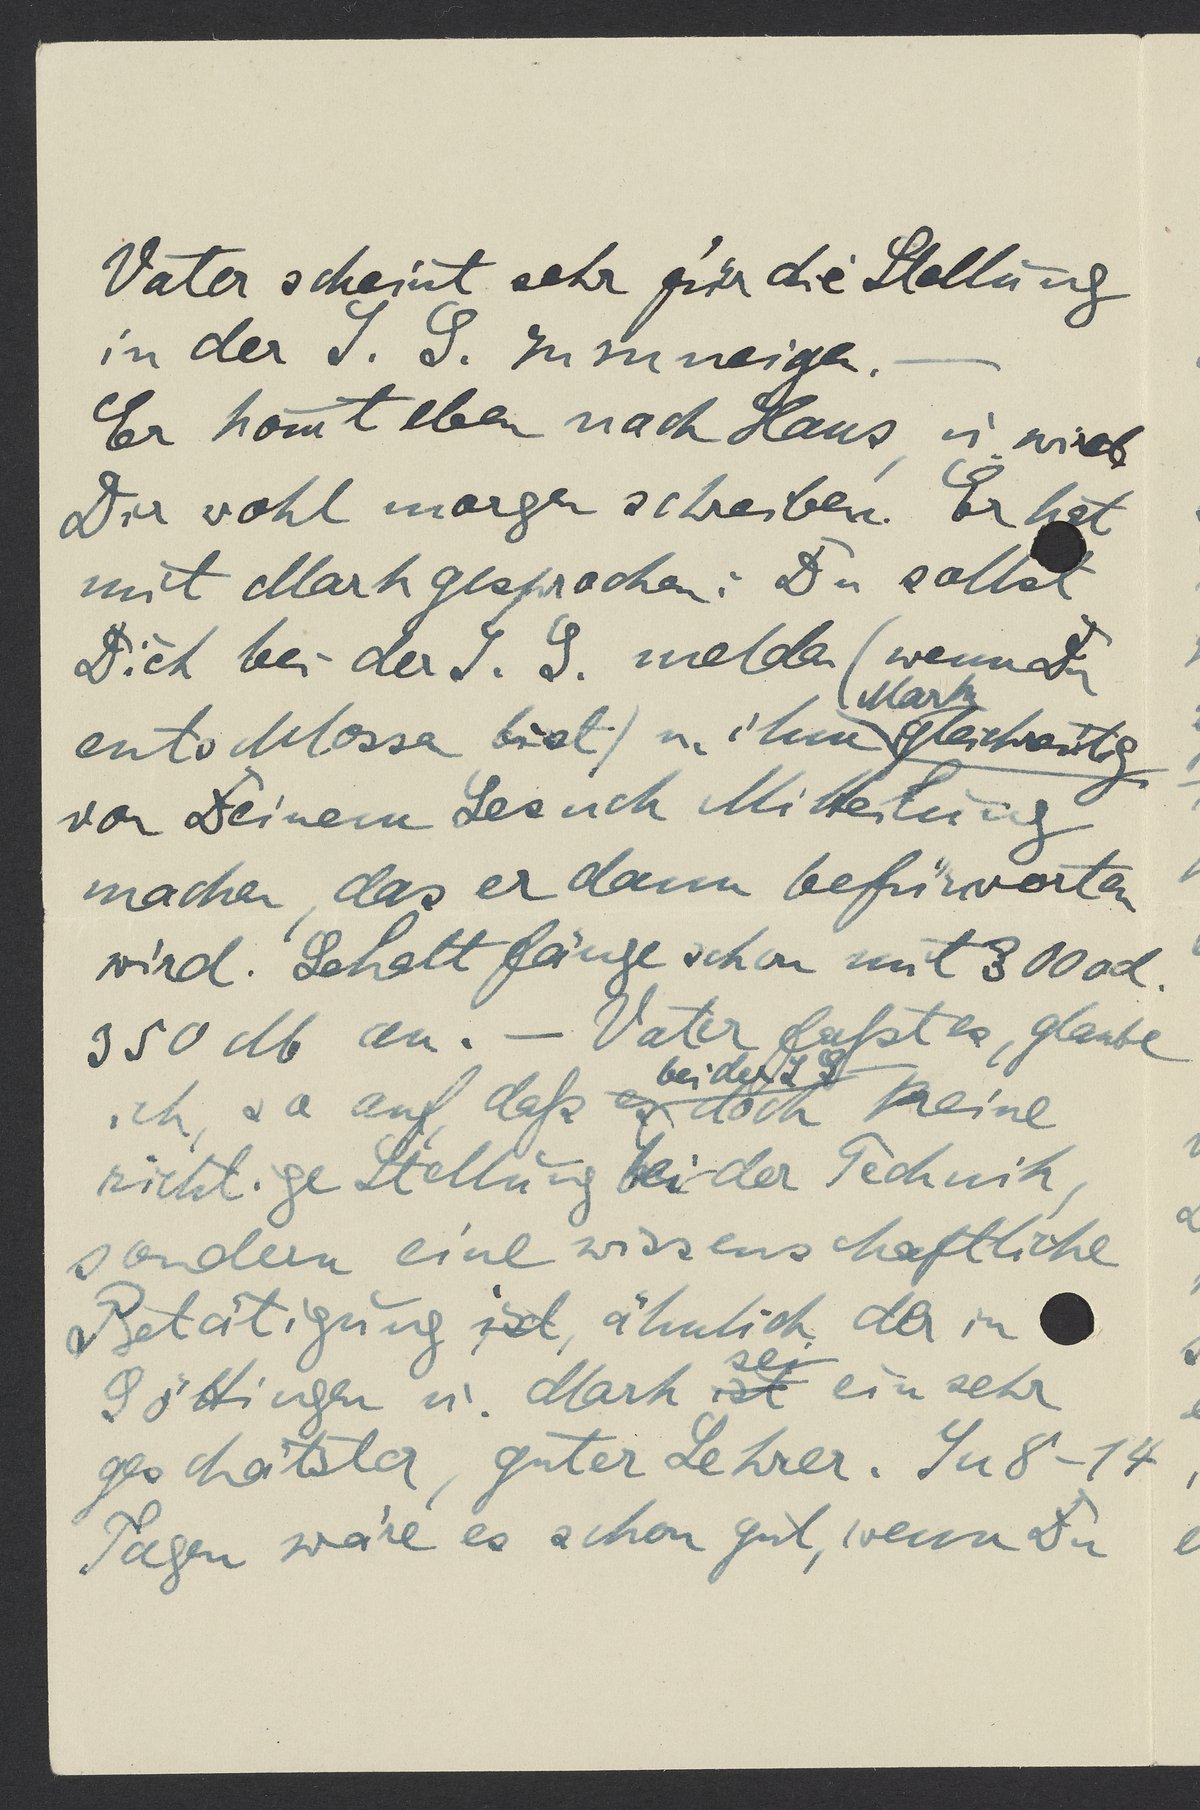 Vater scheint sehr für die Stellung
in der I. G. zu zu neigen. —
Er kom̄t eben nach Haus, u. wird
Dir wohl morgen schreiben. Er hat
mit Mark gesprochen: Du sollst
Dich bei der I. G. melden (wenn Du
Mark
entschlossen bist) u. ihm gleichzeitig
von Deinem Gesuch Mitteilung
machen, das er dann befürworten
wird. Gehalt fänge schon mit 300 od.
350 M an. — Vater faßt es, glaube
bei der I G
ich, so auf, daß es doch keine
richtige Stellung bei der Technik,
sondern eine wissenschaftliche
Betätigung ist, ähnlich der in
sei
Göttingen u. Mark ist ein sehr
geschätzter, guter Lehrer. In 8–14
Tagen wäre es schon gut, wenn Du